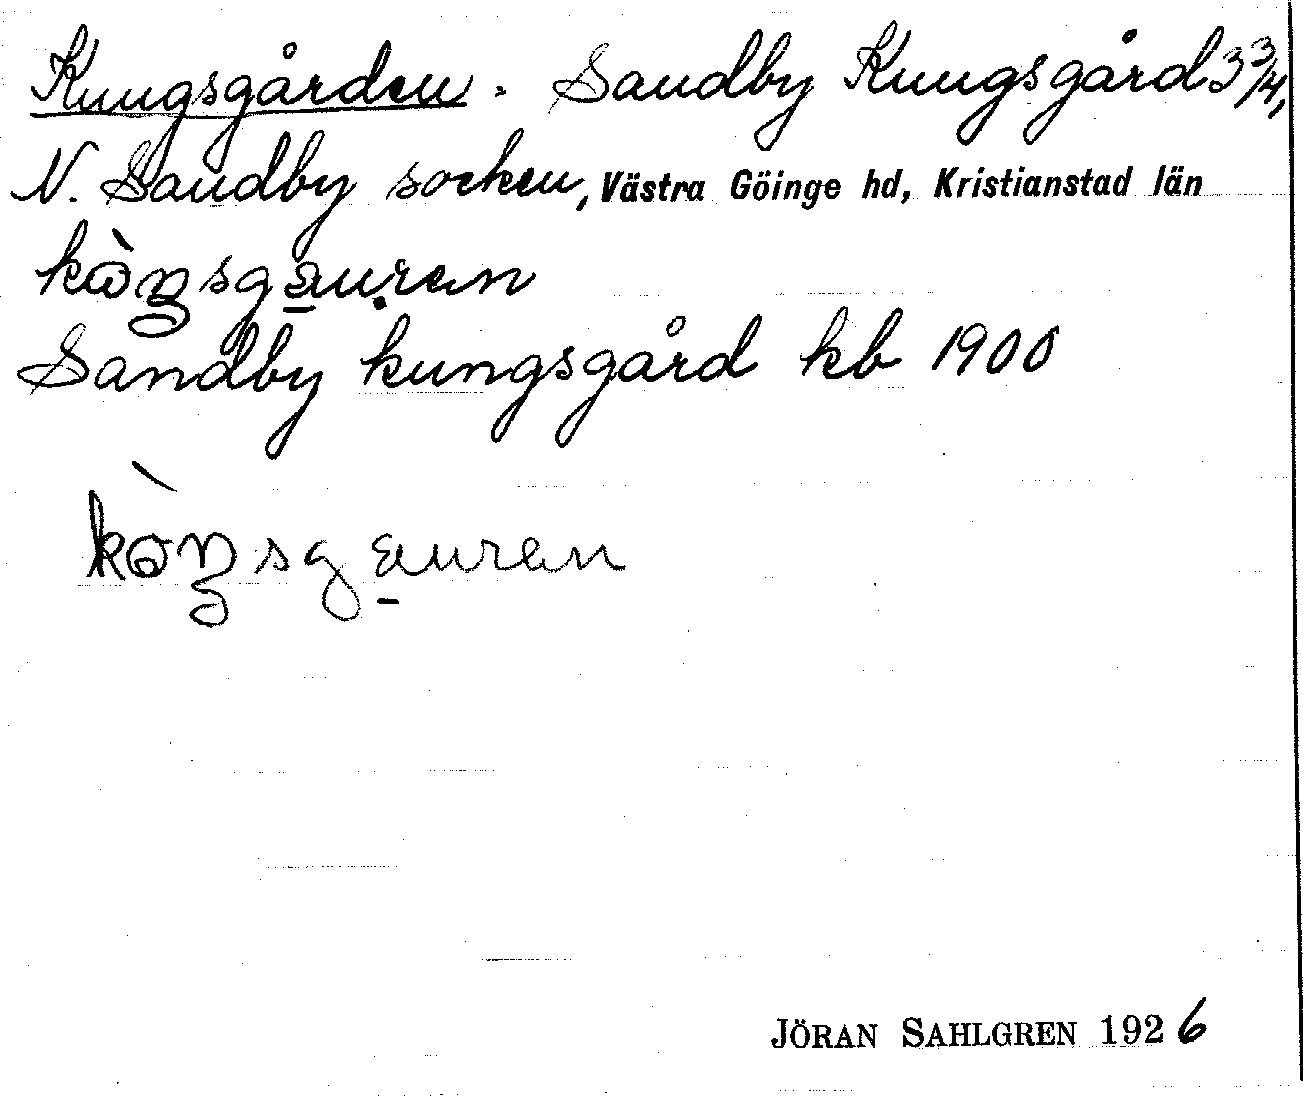 Kungsgården. Sandby Kungsgård 3 3/4,
N. Sandby socken, Västra Göinge hd, Kristianstad län
Sandby kungsgård kb 1900
JÖRAN SAHLGREN 1926